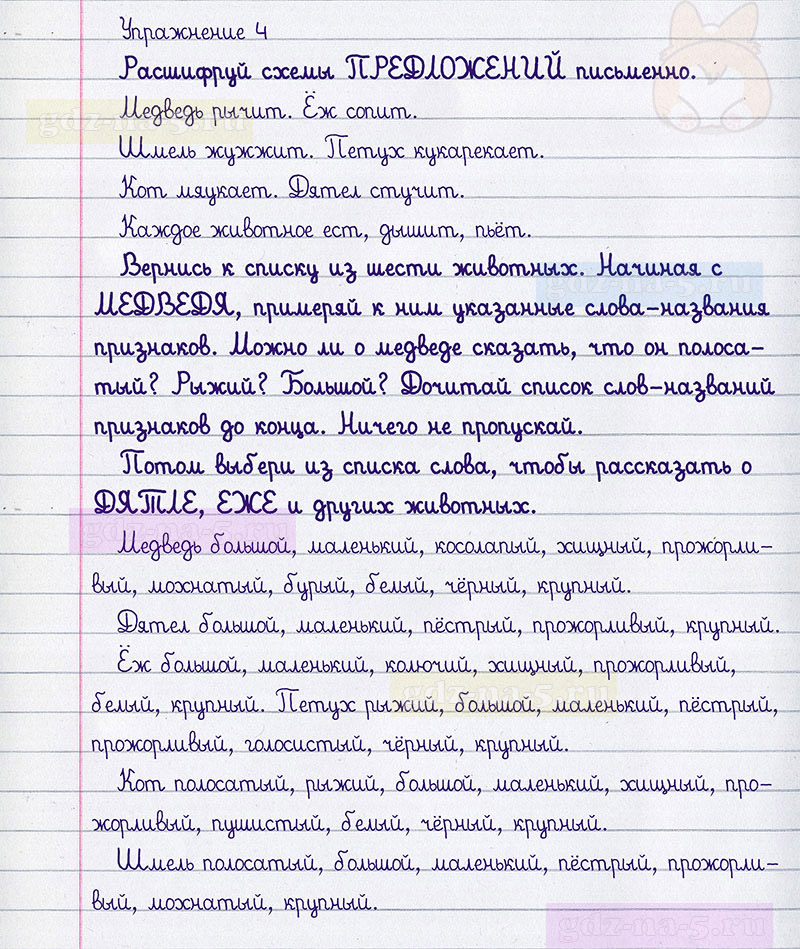 Упражнение 4
Расшифруй схемы ПРЕДЛОЖЕНИЙ письменно.
Медведь рычит. Ёж сопит.
gdz-na-5.ru
Шмель жужжит. Петух кукарекает.
Кот мяукает. Дятел стучит.
Каждое животное ест, дышит, пьёт.
Вернись к списку из шести животных. Начиная с
gdz-na-5.ru
МЕДВЕДЯ, примеряй к ним указанные слова-названия
признаков. Можно ли о медведе сказать, что он полоса-
тый? Рыжий? Большой? Дочитай список слов-названий
признаков до конца. Ничего не пропускай.
Потом выбери из списка слова, чтобы рассказать о
ДЯТЛЕ, ЕЖЕ и других животных.
gdz-na-5.ru
Медведь большой, маленький, косолапый, хищный, прожорли-
вый, мохнатый, бурый, белый, чёрный, крупный.
Дятел большой, маленький, пёстрый, прожорливый, крупный.
Ёж большой, маленький, колючий, хищный, прожорливый,
gdz-na-5.ru
белый, крупный. Петух рыжий, большой, маленький, пёстрый,
прожорливый, голосистый, чёрный, крупный.
Кот полосатый, рыжий, большой, маленький, хищный, про-
жорливый, пушистый, белый, чёрный, крупный.
Шмель полосатый, большой, маленький, пёстрый, прожорли-
вый, мохнатый, крупный.
gdz-na-5.ru